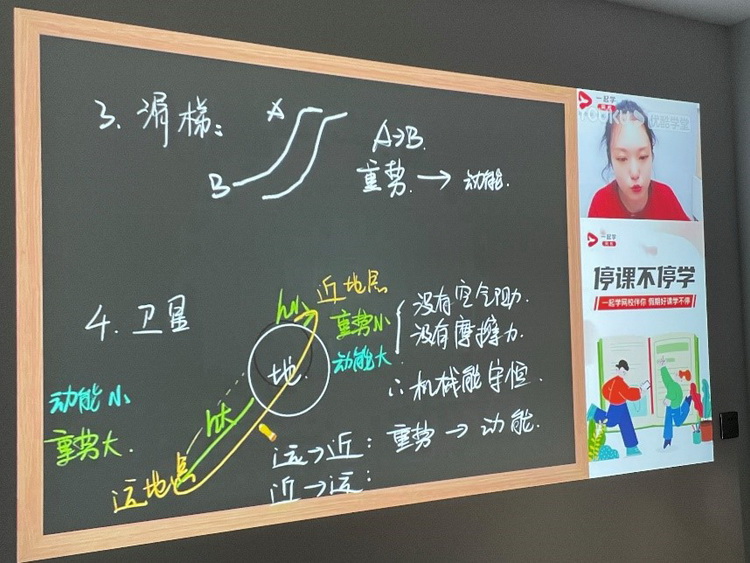 3. 滑梯:
A
B
A→B.
重势. → 动能.
4. 卫星
近地点
h小
重势小
动能大
地
没有空气阻力.
没有摩擦力
∴机械能守恒.
动能小
重势大.
h大
远地点
远→近: 重势 → 动能.
近→远:
一起学
网校
YOUKU
一起学
网校
停课不停学
一起学网校伴你 假期好课学不停